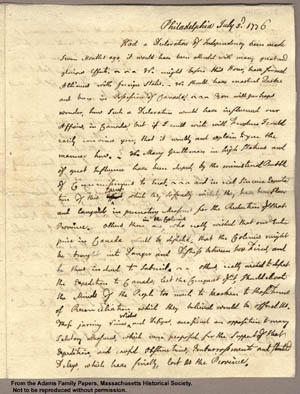 Philadelphia July 3d. 1776
Had a Declaration of Independency been made
seven Months ago, it would have been attended with many great and
glorious Effects. We might before this Hour, have formed
Alliances with foreign States. We should have mastered Quebec
and been in Possession of Canada. You will perhaps
wonder, how such a Declaration would have influenced our
Affairs, in Canada, but if I could write with Freedom I could
easily convince you, that it would, and explain to you the
manner how. Many Gentlemen in high Stations and
of great Influence have been duped, by the ministerial Bubble
of Commissioners to treat and in real, sincere Expecta
tion of this Event, which they so fondly wished, they have been slow
and languid, in promoting Measures for the Reduction of that
Province. Others there are in the Colonies who really wished that our Enter
prise in Canada would be defeated, that the Colonies might
be brought into Danger and Distress between two Fires, and
be thus induced to submit. Others really wished to defeat
the Expedition to Canada, lest the Conquest of it, should elevate
the Minds of the People too much to hearken to those Terms
of Reconciliation which they believed would be offered Us.
These jarring Views, Wishes and Designs, occasioned an opposition to many
salutary Measures, which were proposed for the Support of that
Expedition, and caused Obstructions, Embarrassments and studied
Delays, which have finally, lost Us the Province.
From the Adams Family Papers, Massachusetts Historical Society.
Not to be reproduced without permission.